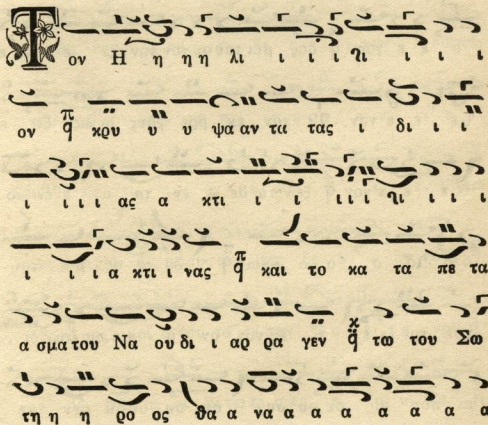 Τον Η η η η λι ι ι ι λι ι ι ι
ον π q κρυ υ υ ψα αν τα τας ι δι ι ι
ι ι ι ι ας α κτι ι ι ι ι ι λι ι ι ι
ι ι ι α κτι ι νας π q και το κα τα πε τα
α σμα του Να ου δι ι αρ ρα γεν κ q τω του Σω
τη η η ρο ος θα α να α α α α α α α